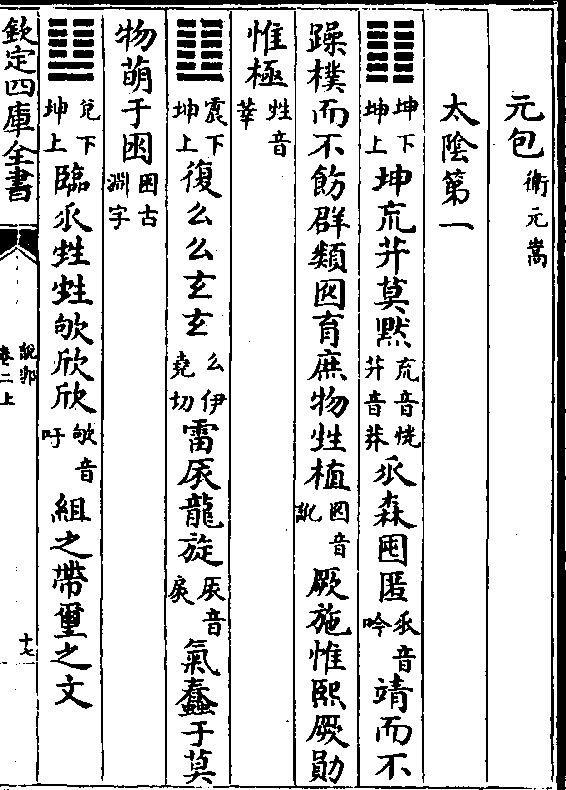 元包衛元嵩
太陰第一
䷁坤下坤上坤巟芔莫默巟音恍芔音莽乑森囤匿乑音吟靖而不
躁樸而不飭群類囮育庶物牲植囮音訛厥施惟熙厥勛
惟極牲音莘
䷗震下坤上復幺幺玄玄幺伊堯切雷龍旋音戾氣蠢于莫
物萌于囦囦古淵字
䷒兌下坤上臨乑甡甡欨欣欣欨音吁組之帶璽之文
欽定四庫全書
說郛
卷二上
十七